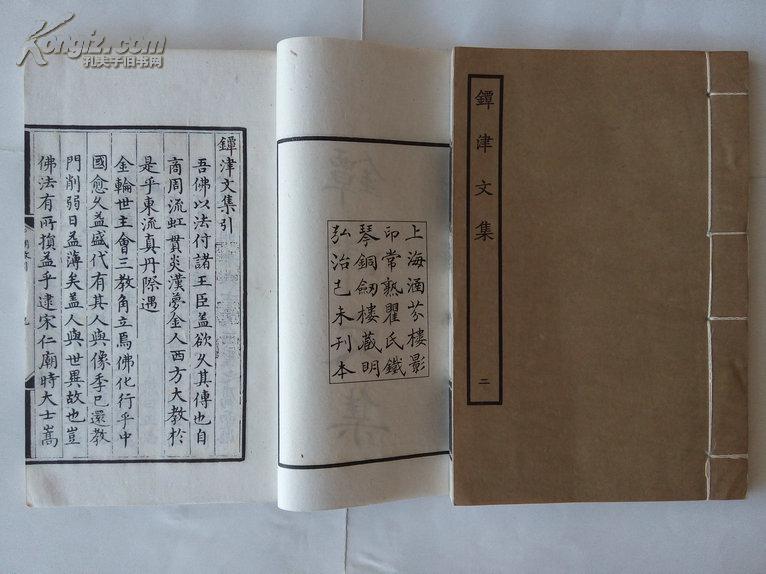 Kongfz.com
孔夫子旧书网
鐔津文集
二
上海涵芬樓影
印常熟瞿氏鐵
琴銅劒樓藏明
弘治己未刊本
鐔津文集引
吾佛以法付諸王臣蓋欲久其傳也自
商周流虹貫炎漢夢金人西方大教於
是乎東流真丹際遇
金輪世主會三教角立焉佛化行乎中
國愈久益盛代有其人與像季已還教
門削弱日益薄矣蓋人與世異故也豈
佛法有所損益乎逮宋仁廟時大士嵩